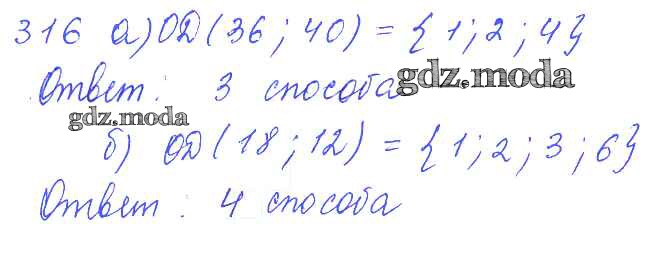 316 а) ОД (36 ; 40) = { 1 ; 2 ; 4}
Ответ : 3 способа
gdz.moda
gdz.moda
б) ОД (18 ; 12) = { 1 ; 2 ; 3 ; 6}
Ответ : 4 способа